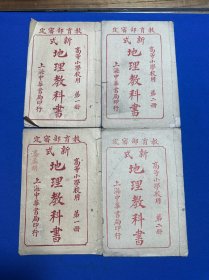 教育部審定
高等小學校用 第一冊
新式
地理教科書
上海中華書局印行
教育部審定
高等小學校用 第二冊
新式
地理教科書
上海中華書局印行
教育部審定
高等小學校用 第一冊
新式
地理教科書
上海中華書局印行
教育部審定
高等小學校用 第二冊
新式
地理教科書
上海中華書局印行